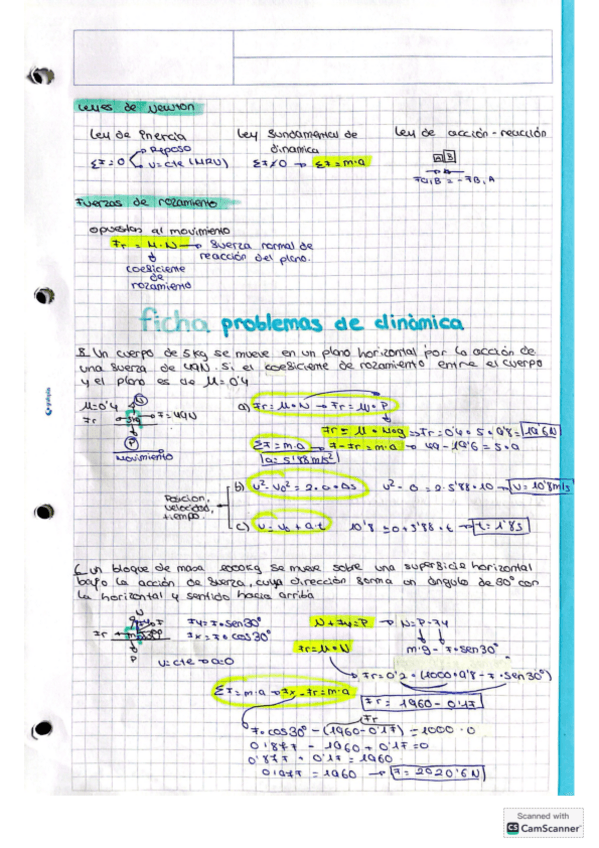 Leyes de Newton
Ley de Inercia
Ley fundamental de dinamica
Ley de acción-reacción
ΣF=0
Reposo
v=cte (MRU)
ΣF≠0 → ΣF=m·a
A B
FA,B = -FB,A
Fuerzas de rozamiento
opuestas al movimiento
Fr = μ·N → fuerza normal de
reacción del plano.
coeficiente
de
rozamiento
ficha problemas de dinámica
Un cuerpo de 5kg se mueve en un plano horizontal por la acción de
una fuerza de 49N. Si el coeficiente de rozamiento entre el cuerpo
y el plano es de μ=0'4
μ=0'4
N
Fr
5kg
F=49N
P
movimiento
a) Fr=μ·N → Fr=μ·P
Fr = μ·m·g → Fr=0'4·5·9'8=19'6N
ΣF=m·a → F-Fr=m·a → 49-19'6=5·a
a=5'88m/s²
Posición,
velocidad,
tiempo.
b) v²-v0²=2·a·Δs v²-0=2·5'88·10 → v=10'8m/s
c) v=v0+a·t 10'8=0+5'88·t → t=1'8s
un bloque de masa 1000kg se mueve sobre una superficie horizontal
bajo la acción de fuerza, cuya dirección forma un ángulo de 30° con
la horizontal y sentido hacia arriba
N
Fr
P
Fy=F·sen30°
Fx=F·cos30°
v=cte → a=0
N+Fy=P → N=P-Fy
Fr=μ·N
m·g-F·sen30°
Fr=0'2·(1000·9'8-F·sen30°)
ΣF=m·a → Fx-Fr=m·a
Fr=1960-0'1F
Fr
F·cos30°-(1960-0'1F)=1000·0
0'87F-1960+0'1F=0
0'87F+0'1F=1960
0'97F=1960 → F=2020'6N
Scanned with
CS CamScanner